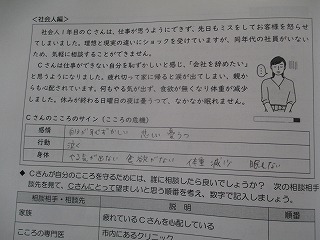 ＜社会人編＞
社会人１年目のＣさんは、仕事が思うようにできず、先日もミスをしてお客様を怒らせ
てしまいました。理想と現実の違いにショックを受けていますが、同年代の社員がいない
ため、気軽に相談することができません。
Ｃさんは仕事ができない自分を恥ずかしいと感じ、「会社を辞めたい」
と思うようになりました。疲れ切って家に帰ると涙が出てしまい、親か
らも心配されています。何もやる気が出ず、食欲が無くなり体重が減少
しました。休みが終わる日曜日の夜は憂うつで、なかなか眠れません。
Ｃさんのこころのサイン（こころの危機）
感情 自分が恥ずかしい 憂うつ
行動 泣く
身体 やる気が出ない 食欲がない 体重減少 眠れない
◆ Ｃさんが自分のこころを守るためには、誰に相談したら良いでしょうか？ 次の相談相手・相
談先を見て、Ｃさんにとって望ましいと思う順番を考え、数字で記入しましょう。
相談相手・相談先 説 明 順番
家族 疲れているＣさんを心配している
こころの専門医 市内にあるクリニック